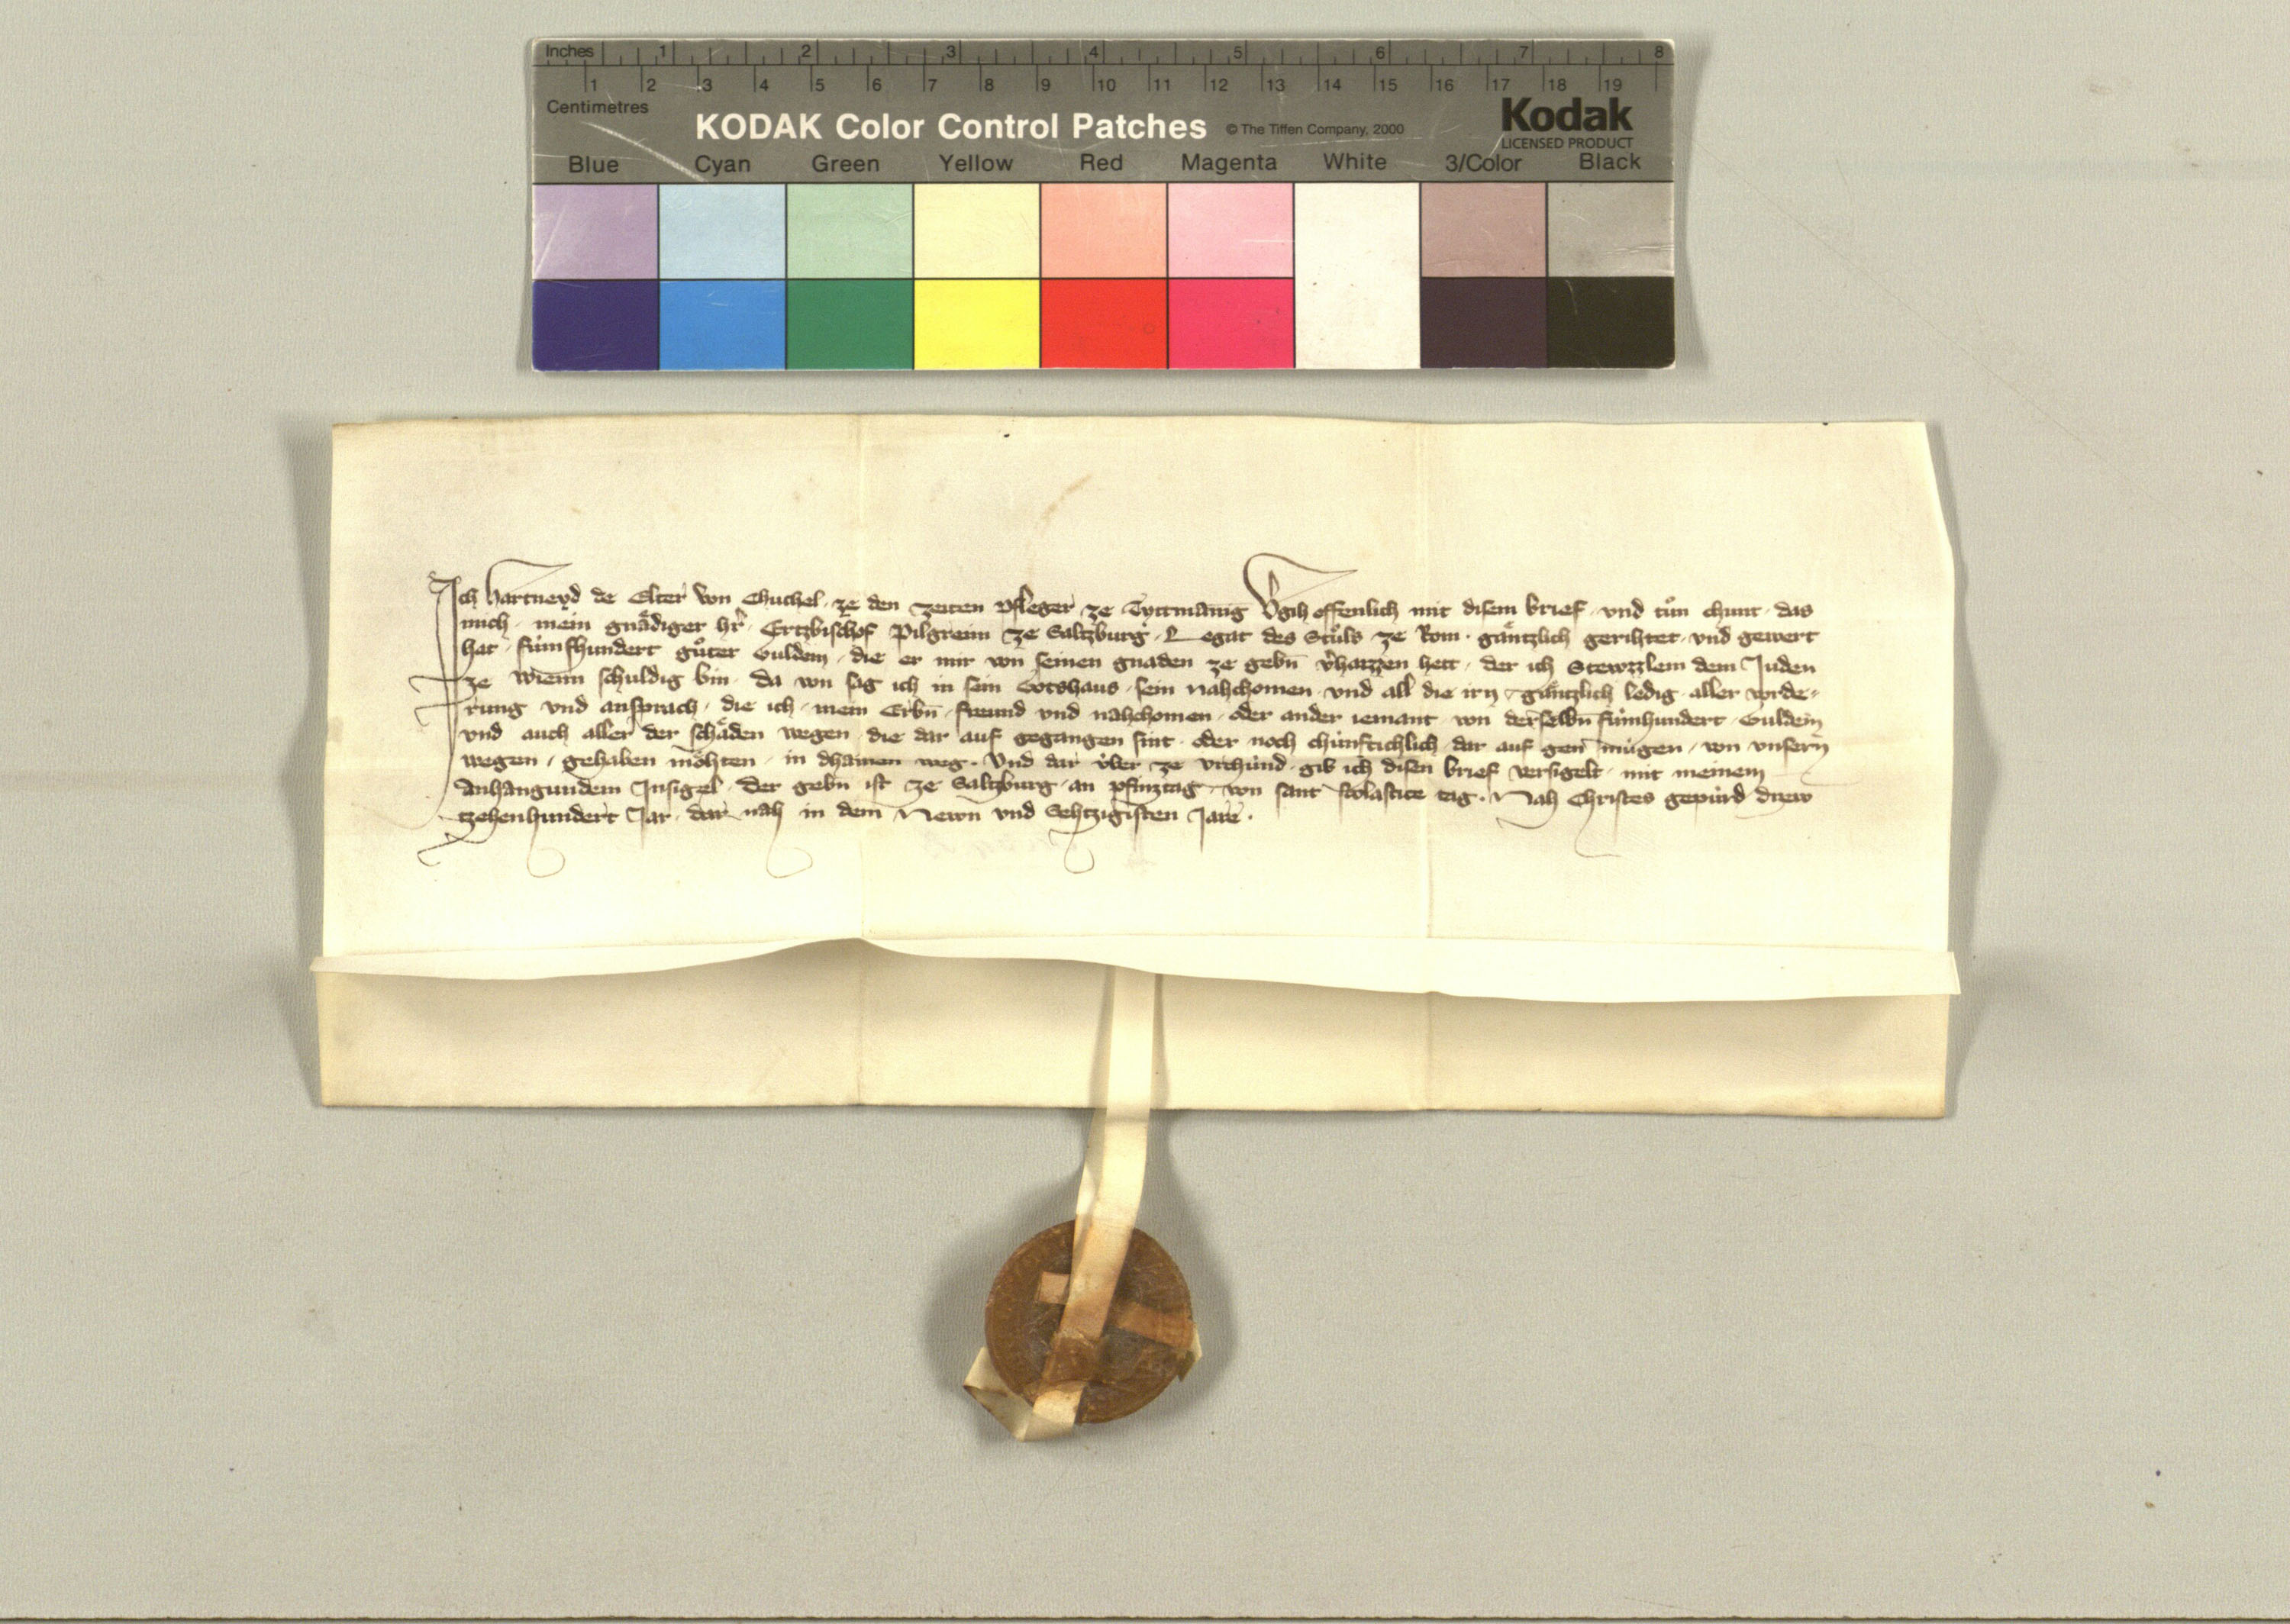 Inches 1 2 3 4 5 6 7 8
1 2 3 4 5 6 7 8 9 10 11 12 13 14 15 16 17 18 19
Centimetres
KODAK Color Control Patches © The Tiffen Company, 2000 Kodak
LICENSED PRODUCT
Blue Cyan Green Yellow Red Magenta White 3/Color Black
Ich Hartneyd de Elter von Chuchel ze den zeiten Pfleger ze Tyttmanig V̂gih offenlich mit disem brief und tůn chunt das
mich mein gnädiger hr̂ Ertzbischof Pilgreim ze Saltzburg Legat des Stůls ze Rom gäntzlich gerihtet und gewert
hat fumfhundert gůter Guldein die er mir von seinen gnaden ze gebn̄ v̂haizzen hett der ich Stewzzlem dem Juden
ze Wienn schuldig bin da von sag ich in sein Gotshaus sein nahchomen und all die irn gäntzlich ledig aller vorde-
rung und ansprach die ich mein Erbn̄ freund und nahchomen oder ander iemant von derselbn̄ fumhundert Guldein
und auch aller der schäden wegen die dar auf gegangen sint oder noch chünftichlich dar auf gen mügen von unsern
wegen gehaben möhten in dhainen weg. Und dar über ze urchünd gib ich disen brief versigelt mit meinem
anhangundem Insigel Der gebn̄ ist ze Saltzburg an pfintztag von sant Scolastice tag. Nah Christes gepürd drew
tzehenhundert Jar dar nah in dem Newn und Sehtzigisten Jare.